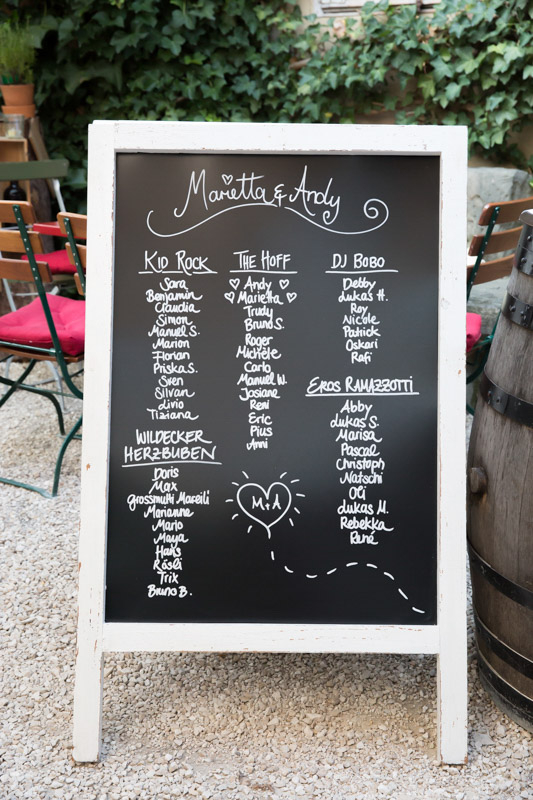 Marietta & Andy
KID ROCK
Sara
Benjamin
Claudia
Simon
Manuel S.
Marion
Florian
Priska S.
Sven
Silvan
Livio
Tiziana
WILDECKER
HERZBUBEN
Doris
Max
Grossmutti Mareili
Marianne
Mario
Maya
Hans
Rösli
Trix
Bruno B.
THE HOFF
Andy
Marietta
Trudy
Bruno S.
Roger
Michèle
Carlo
Manuel W.
Josiane
Reni
Eric
Pius
Anni
M + A
DJ BOBO
Debby
Lukas H.
Roy
Nicole
Patrick
Oskari
Rafi
EROS RAMAZZOTTI
Abby
Lukas S.
Marisa
Pascal
Christoph
Natschi
Oli
Lukas M.
Rebekka
René